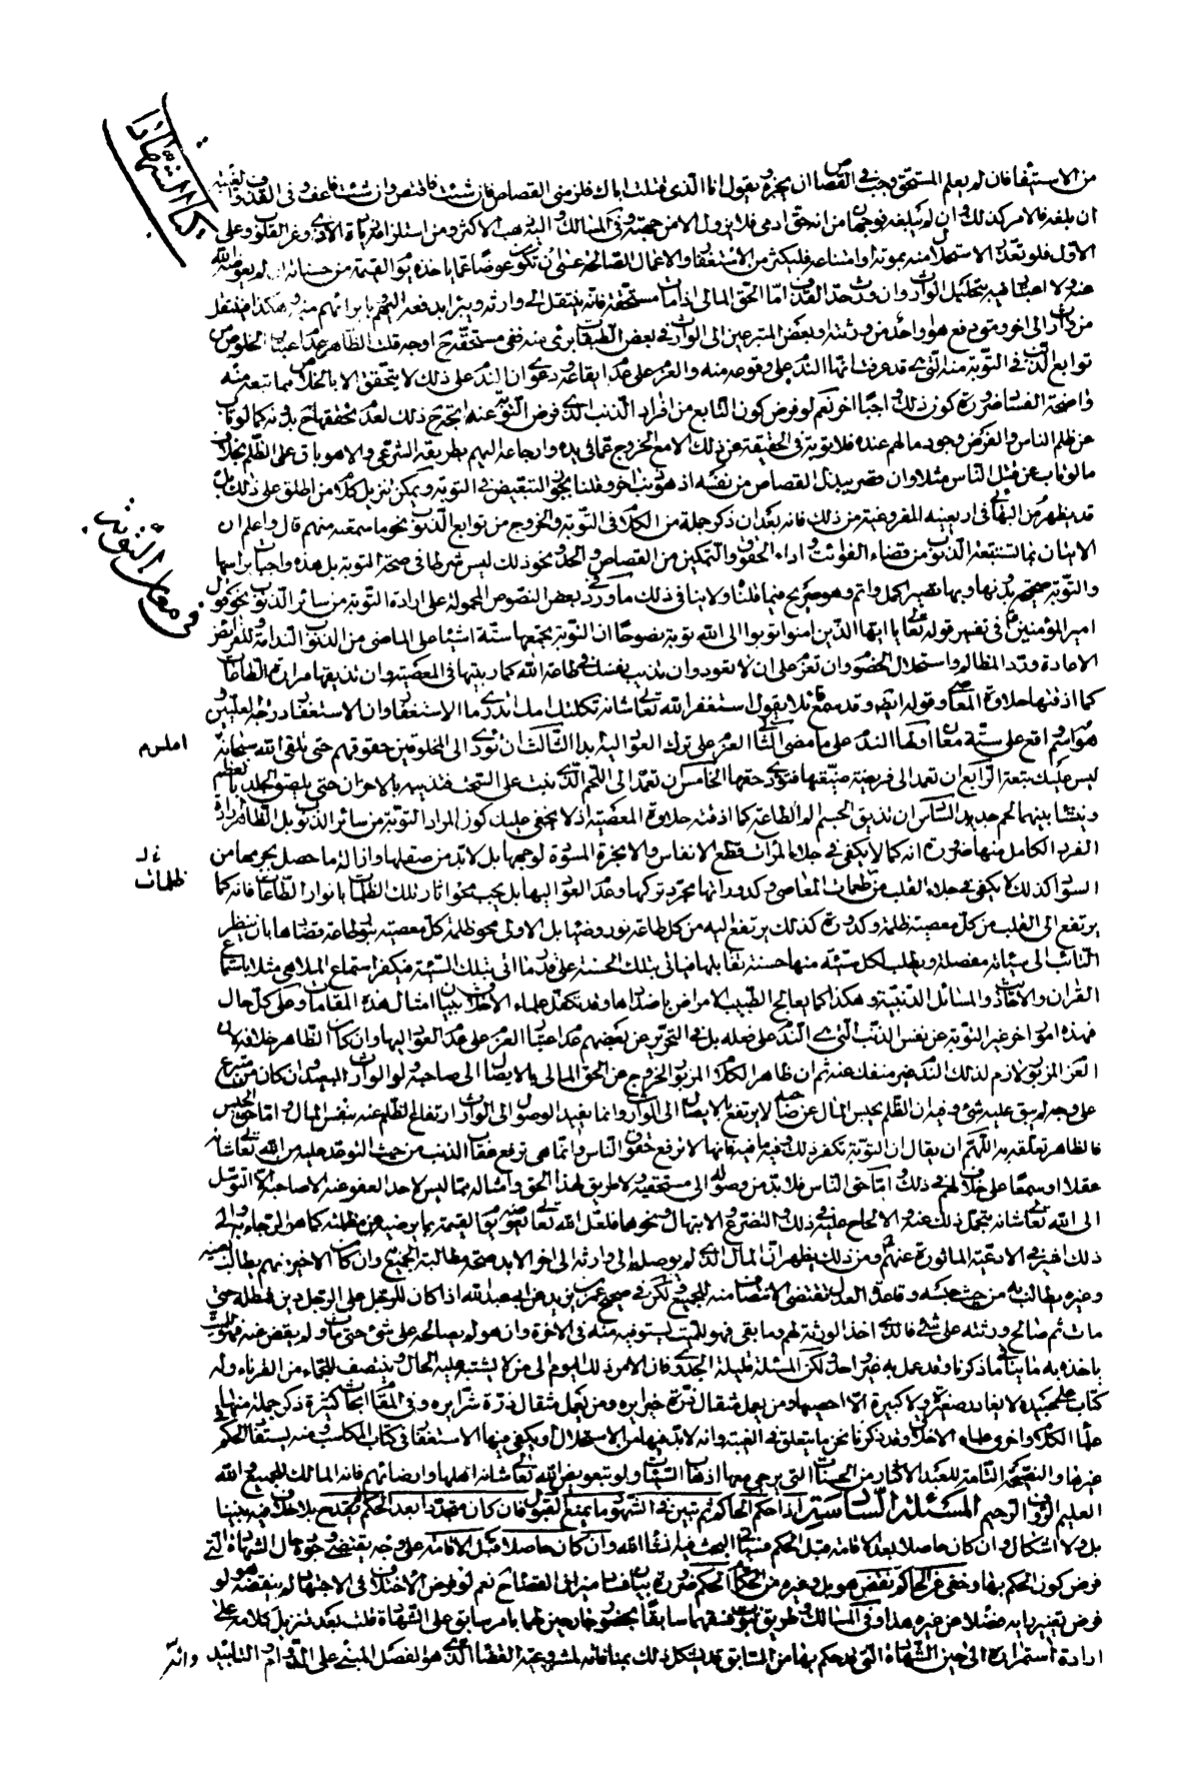 كتاب الشهادات
من الاستيفاء فان لم يعلم المستحق وجب في القصاص ان يخبره ويقول انا الذى قتلت اباك فلزمنى القصاص فان شئت فاقتص وان شئت فاعف وفى القذف والغيبة
ان بلغه فالامر كذلك وان لم يبلغه فوجهان من انه حق ادمى فلا يزول الا من جهته وفى المسالك واليه ذهب الاكثر ومن استلزامه زيادة الاذى ووغر القلوب وعلى
الاول فلو تعذر الاستحلال منه بموته او امتناعه فليكثر من الاستغفار والاعمال الصالحة عسى ان تكون عوضا عما ياخذه يوم القيمة من حسناته ان لم يعوضه الله
عنه ولا اعتبار فيه بتحليل الوارث وان ورث حد القذف اما الحق المالى اذا مات مستحقه فانه ينتقل الى وارثه ويبرا بدفعه اليهم او بابرائهم منه وهكذا ينتقل
من وارث الى اخر ومتى دفع هو او احد من ورثته او بعض المتبرعين الى الوارث في بعض الطبقات برئ منه ففي مستحقه ح اوجه قلت الظاهر عدم اعتبار الخلوص من
توابع الذنب في التوبة منه التى قد عرفت انها الندم على وقوعه منه والعزم على عدم ايقاعه ودعوى ان الندم على ذلك لا يتحقق الا بالخلاص مما تبعه منه
واضحة الفساد ضرورة كون ذلك واجبا اخر نعم لو فرض كون التابع من افراد الذنب الذى فرض التوبة عنه اتجه ح ذلك لعدم تحققها ح بدونه كما لو تاب
عن ظلم الناس والفرض وجود مالهم عنده فلا توبة في الحقيقة عن ذلك الا مع الخروج عما في يده وارجاعه اليهم بطريقه الشرعى والا هو باق على الظلم بخلاف
ما لو تاب عن قتل الناس مثلا وان قصر ببذل القصاص من نفسه اذ هو ذنب اخر وقلنا بجواز التبعيض في التوبة ويمكن تنزيل كلام من اطلق على ذلك بل
قد يظهر من البهائى في اربعينه المفروغية من ذلك فانه بعد ان ذكر جملة من الكلام في التوبة والخروج من توابع الذنوب نحو ما سمعته منهم قال واعلم ان
الاتيان بما تستتبعه الذنوب من قضاء الفوائت واداء الحقوق والتمكين من القصاص والحد ونحو ذلك ليس شرطا في صحة التوبة بل هذه واجبات براسها
والتوبة صحيحة بدونها وبها تصير اكمل واتم وهو صريح فيما قلناه ولا ينافى ذلك ما ورد في بعض النصوص المحمولة على ارادة التوبة من سائر الذنوب نحو قول
في معانى التوبة
امير المؤمنين ع في تفسير قوله تعالى يا ايها الذين امنوا توبوا الى الله توبة نصوحا ان التوبة يجمعها ستة اشياء على الماضى من الذنوب الندامة وللفرائض
الاعادة ورد المظالم واستحلال الخصوم وان تعزم على ان لا تعود وان تذيب نفسك في طاعة الله كما ربيتها في المعصية وان تذيقها مرارة الطاعات
كما اذقتها حلاوة المعاصى وقوله ايضا وقد سمع قائلا يقول استغفر الله تعالى شانه ثكلتك امك اتدرى ما الاستغفار ان الاستغفار درجة العليين
وهو اسم واقع على ستة معان اولها الندم على ما مضى الثانى العزم على ترك العود اليه ابدا الثالث ان تؤدى الى المخلوقين حقوقهم حتى تلقى الله سبحانه
املس م
ليس عليك تبعة الرابع ان تعمد الى فريضة ضيعتها فتؤدى حقها الخامس ان تعمد الى اللحم الذى نبت على السحت فتذيبه بالاحزان حتى يلصق الجلد بالعظم
وينشا بينهما لحم جديد السادس ان تذيق الجسم الم الطاعة كما اذقته حلاوة المعصية اذ لا يخفى عليك كون المراد التوبة من سائر الذنوب بل الظاهر ارادة
الفرد الكامل منها ضرورة انه كما لا يكفى في جلاء المرات قطع الانفاس والابخرة المسودة لوجهها بل لا بد من صقلها وازالة ما حصل بجرمها من
السواد كذلك لا يكفى في جلاء القلب من ظلمات المعاصى وكدوراتها مجرد تركها وعدم العود اليها بل يجب محو اثار تلك الظلمات بانوار الطاعات فانه كما
ظلمات
يرتفع الى القلب من كل معصية ظلمة وكدورة كذلك يرتفع اليه من كل طاعة نور وضياء بل الاولى محو ظلمة كل معصية بنور طاعة تضادها بان ينظر
التائب الى سيئاته مفصلة ويطلب لكل سيئة منها حسنة تقابلها فياتى بتلك الحسنة على قدر ما اتى بتلك السيئة فيكفر استماع الملاهى مثلا باستماع
القران والاحاديث والمسائل الدينية وهكذا كما يعالج الطبيب الامراض باضدادها وقد تكفل علماء الاخلاق ببيان امثال هذه المقامات وعلى كل حال
فهذه امور اخر غير التوبة عن نفس الذنب التى هى الندم على فعله بل في التحرير عن بعضهم عدم اعتبار العزم على عدم العود اليها وان كان الظاهر خلافه لان
العزم المزبور لازم لذلك الندم غير منفك عنه ثم ان ظاهر الكلام المزبور الخروج عن الحق المالى بالايصال الى صاحبه ولو الوارث البعيد وان كان من متبرع
على وجه لم يبق عليه شئ وفيه ان الظلم بحبس المال عن صاحبه لا يرتفع بالايصال الى الوارث وانما يفيد الوصول الى الوارث ارتفاع الظلم عنه بنفس المال واما حق الحبس
فالظاهر تعلقه به اللهم ان يقال ان التوبة تكفر ذلك وفيه ما فيه فانها لا ترفع حقوق الناس وانما هى ترفع عقاب الذنب من حيث التوعد عليه من الله تعالى شانه
عقلا او سمعا على خلاف لهم في ذلك اما حق الناس فلا بد من وصوله الى مستحقيه ولا طريق لهذا الحق وامثاله مما ليس لاحد العفو عنه الا صاحبه الا التوسل
الى الله تعالى شانه بتحمل ذلك عنه والالحاح عليه في ذلك والتضرع والابتهال ونحوها فلعل الله تعالى يعوضه يوم القيمة بما يرضيه عن مظلمته كما هو الرجاء به والى
ذلك اشير في الادعية الماثورة عنهم ع ومن ذلك يظهر ان المال الذى لم يوصله الى وارثه الى اخر الابد صحة مطالبة الجميع وان كان الاخير منهم يطالب بعينه
وغيره يطالب به من حيث حبسه وقاعدة العدل تقتضى الانتصاف منه للجميع لكن في صحيح عمر بن يزيد عن ابى عبد الله اذا كان للرجل على الرجل دين فمطله حتى
مات ثم صالح ورثته على شئ فالذى اخذ الورثة لهم وما بقى فهو للميت يستوفيه منه في الاخرة وان هو لم يصالحه على شئ حتى مات ولم يقض عنه فهو للميت
ياخذه به
كتاب علمه عنده لا يغادر صغيرة ولا كبيرة الا احصيها ومن يعمل مثقال ذرة خيرا يره ومن يعمل مثقال ذرة شرا يره وفي المقام ابحاث كثيرة ذكر جملة منها
علماء الكلام واخرى علماء الاخلاق وقد ذكرنا نحن ما يتعلق في الغيبة وانه لا بد فيها من الاستحلال او يكفى منها الاستغفار في كتاب المكاسب ومنه يستفاد الحكم في
غيرها والنصيحة التامة للعبد الاكثار من الحسنات التى يرجى معها اذهاب السيئات ولو بتعويض الله تعالى شانه اهلها وارضائهم فانه المالك للجميع والله
العليم الرؤف الرحيم المسئلة السادسة اذا حكم الحاكم ثم تبين في الشهود ما يمنع القبول فان كان متجددا بعد الحكم لم يقدح بلا خلاف فيه بيننا
بل ولا اشكال وان كان حاصلا بعد الاقامة قبل الحكم فسياتى البحث فيه انشاء الله وان كان حاصلا قبل الاقامة على وجه يقتضى جرحه حال الشهادة التى
فرض كون الحكم بها وخفى عن الحاكم نقض هو بل وغيره من الحكام الحكم ضرورة بيان فساد ميزان القضاء ح نعم لو فرض الاختلاف في الاجتهاد لم ينقضه هو لو
فرض تغير رايه فضلا عن غيره هذا وفي المسالك وطريق ثبوت فسقهما سابقا بحضور جارحين لهما بامر سابق على الشهادة قلت بعد تنزيل كلامه على
ارادة استمراره الى حين الشهادة التى قد حكم بها من السابق قد يشكل ذلك بمنافاته لمشروعية القضاء الذى هو الفصل المبنى على الدوام والتابيد وانه